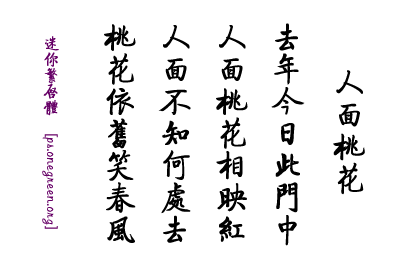 人面桃花
去年今日此門中
人面桃花相映紅
人面不知何處去
桃花依舊笑春風
迷你繁启體 [ps.onegreen.org]